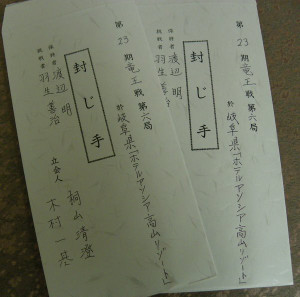 第23期竜王戦第六局
於 岐阜県「ホテルアソシア高山リゾート」
封じ手
保持者 渡辺 明
挑戦者 羽生善治
第23期竜王戦第六局
於 岐阜県「ホテルアソシア高山リゾート」
封じ手
保持者 渡辺 明
挑戦者 羽生善治
立会人 桐山清澄
木村一基